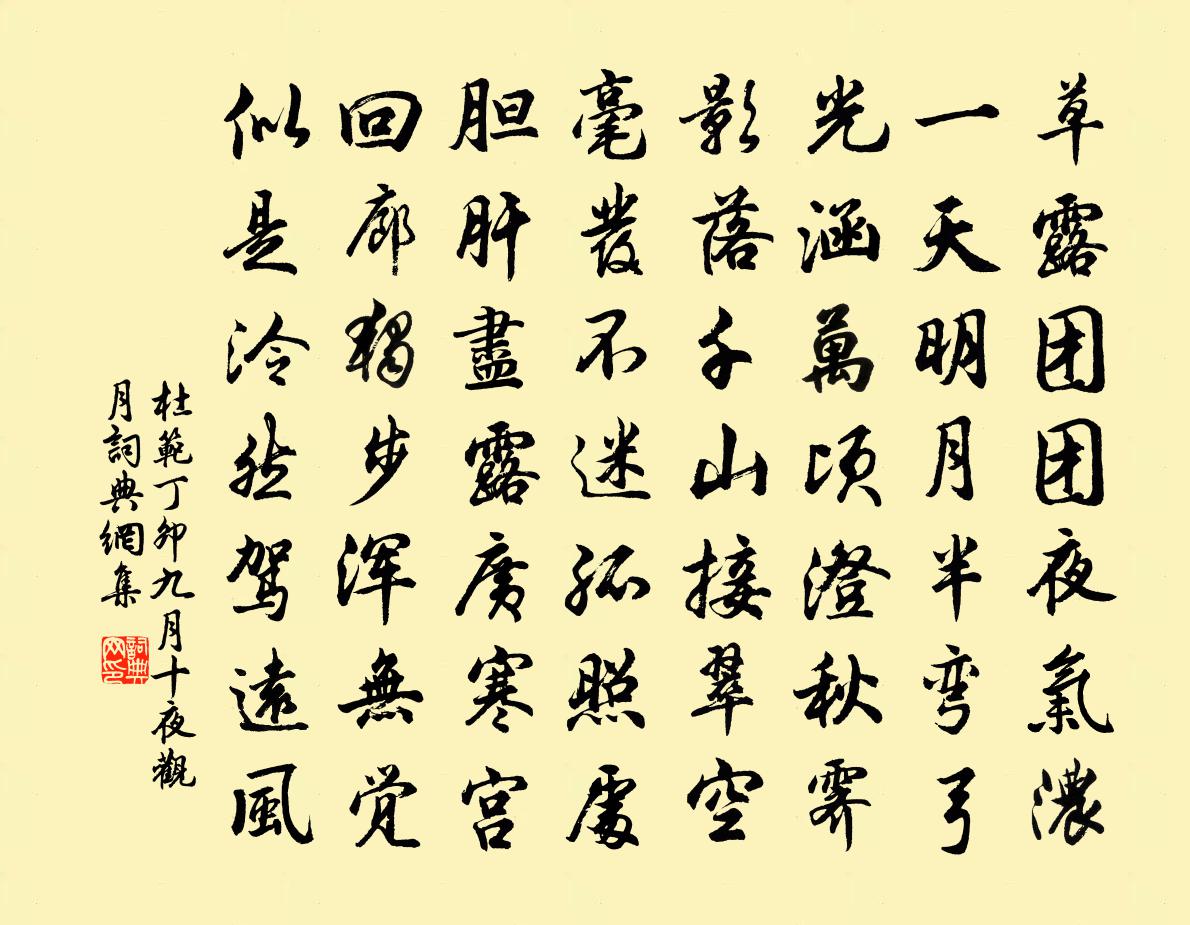 草露团团夜氣濃
一天明月半弯弓
光涵萬頃澄秋霽
影落千山接翠空
毫發不迷孤照處
胆肝盡露廣寒宫
回廊獨步浑無覚
似是泠然駕遠風
杜範丁卯九月十夜觀
月詞典網集
詞典
网印